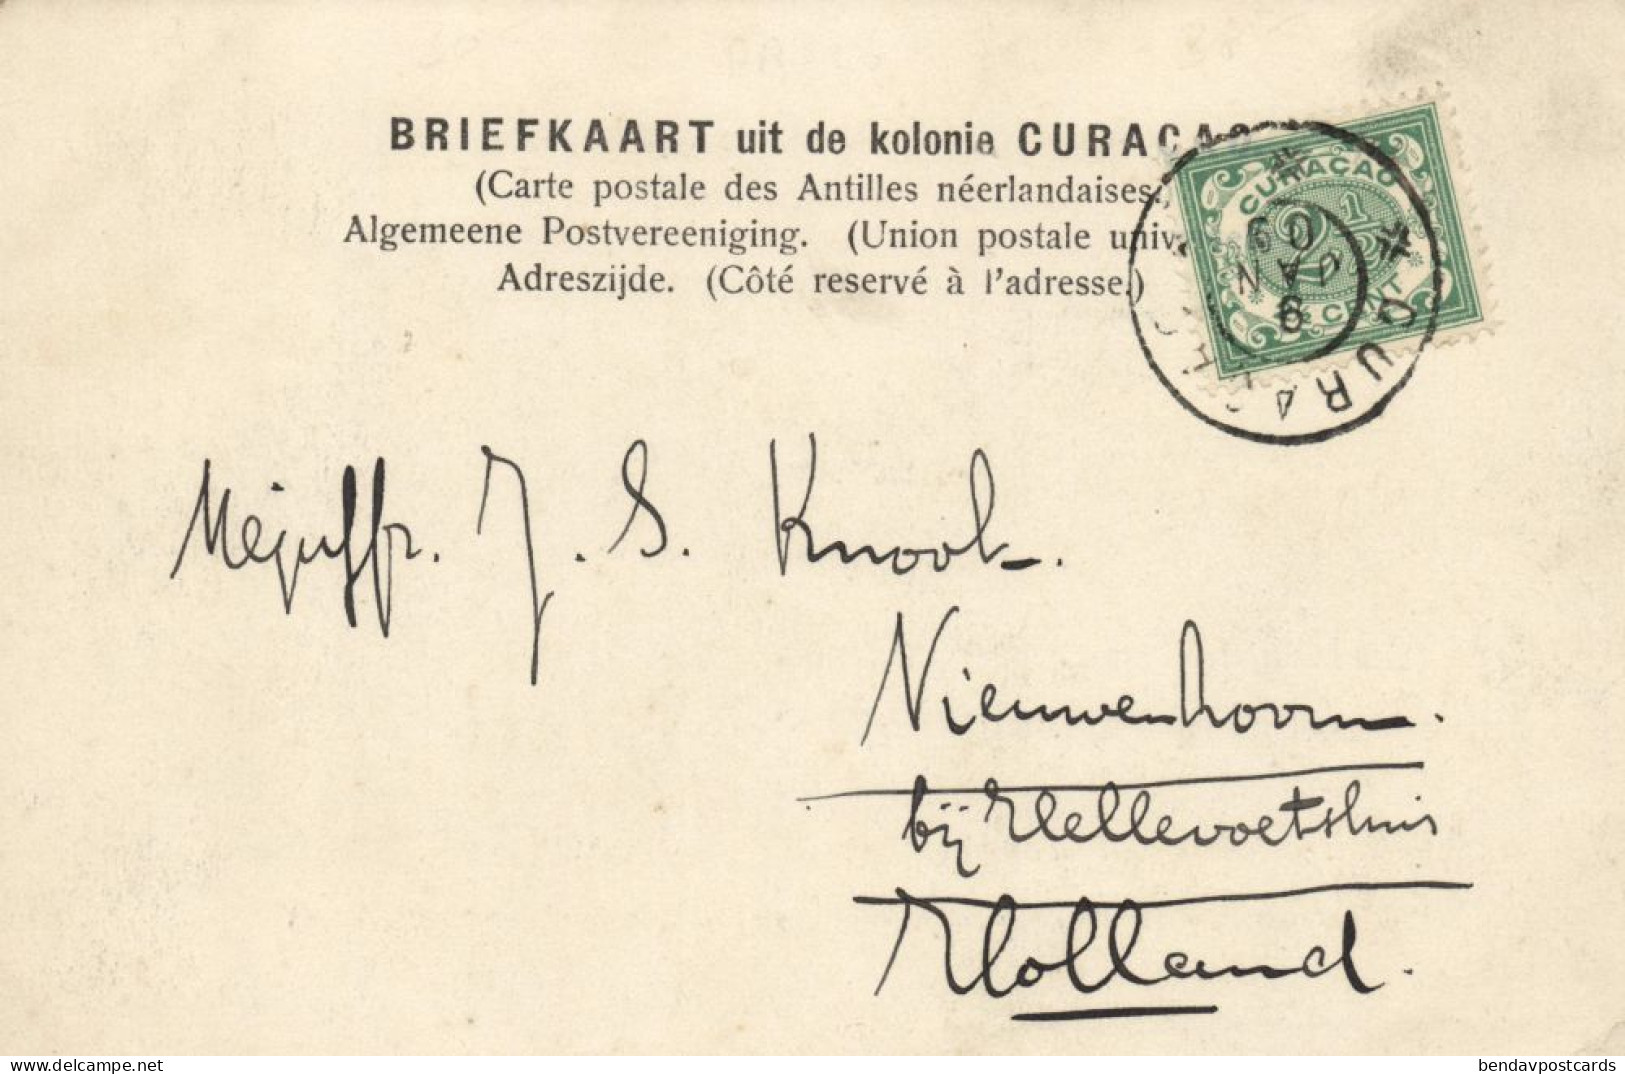 BRIEFKAART uit de kolonie CURAÇAO
(Carte postale des Antilles néerlandaises.)
Algemeene Postvereeniging. (Union postale univ
Adreszijde. (Côté reservé à l'adresse.)
CURAÇAO
2 1/2
CENT
CURAÇAO
6
JAN
09
Mejuffr. J. S. Knook.
Nieuwenhoorn.
bij Hellevoetsluis
Holland.
delcampe.net
bendavpostcards